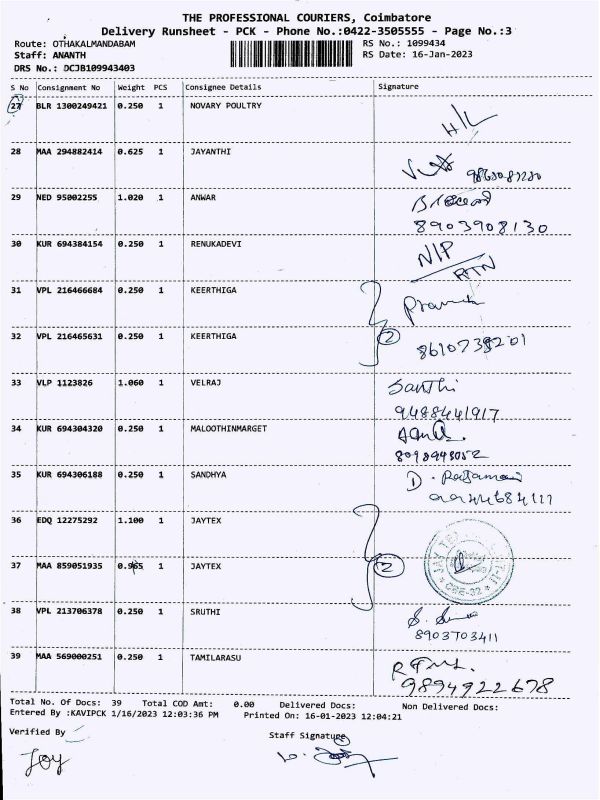 THE PROFESSIONAL COURIERS, Coimbatore
Delivery Runsheet - PCK - Phone No.:0422-3505555 - Page No.:3
Route: OTHAKALMANDABAM RS No.: 1099434
Staff: ANANTH RS Date: 16-Jan-2023
DRS No.: DCJB109943403
S No Consignment No Weight PCS Consignee Details Signature
27 BLR 1300249421 0.250 1 NOVARY POULTRY H/L
28 MAA 294882414 0.625 1 JAYANTHI
29 NED 95002255 1.020 1 ANWAR
8903908130
30 KUR 694384154 0.250 1 RENUKADEVI NIP
RTN
31 VPL 216466684 0.250 1 KEERTHIGA
32 VPL 216465631 0.250 1 KEERTHIGA 2
33 VLP 1123826 1.060 1 VELRAJ Santhi
9488441917
34 KUR 694304320 0.250 1 MALOOTHINMARGET
35 KUR 694306188 0.250 1 SANDHYA
36 EDQ 12275292 1.100 1 JAYTEX
37 MAA 859051935 0.965 1 JAYTEX 2
38 VPL 213706378 0.250 1 SRUTHI
8903703411
39 MAA 569000251 0.250 1 TAMILARASU
9894922678
Total No. Of Docs: 39 Total COD Amt: 0.00 Delivered Docs: Non Delivered Docs:
Entered By :KAVIPCK 1/16/2023 12:03:36 PM Printed On: 16-01-2023 12:04:21
Verified By Staff Signature
Joy